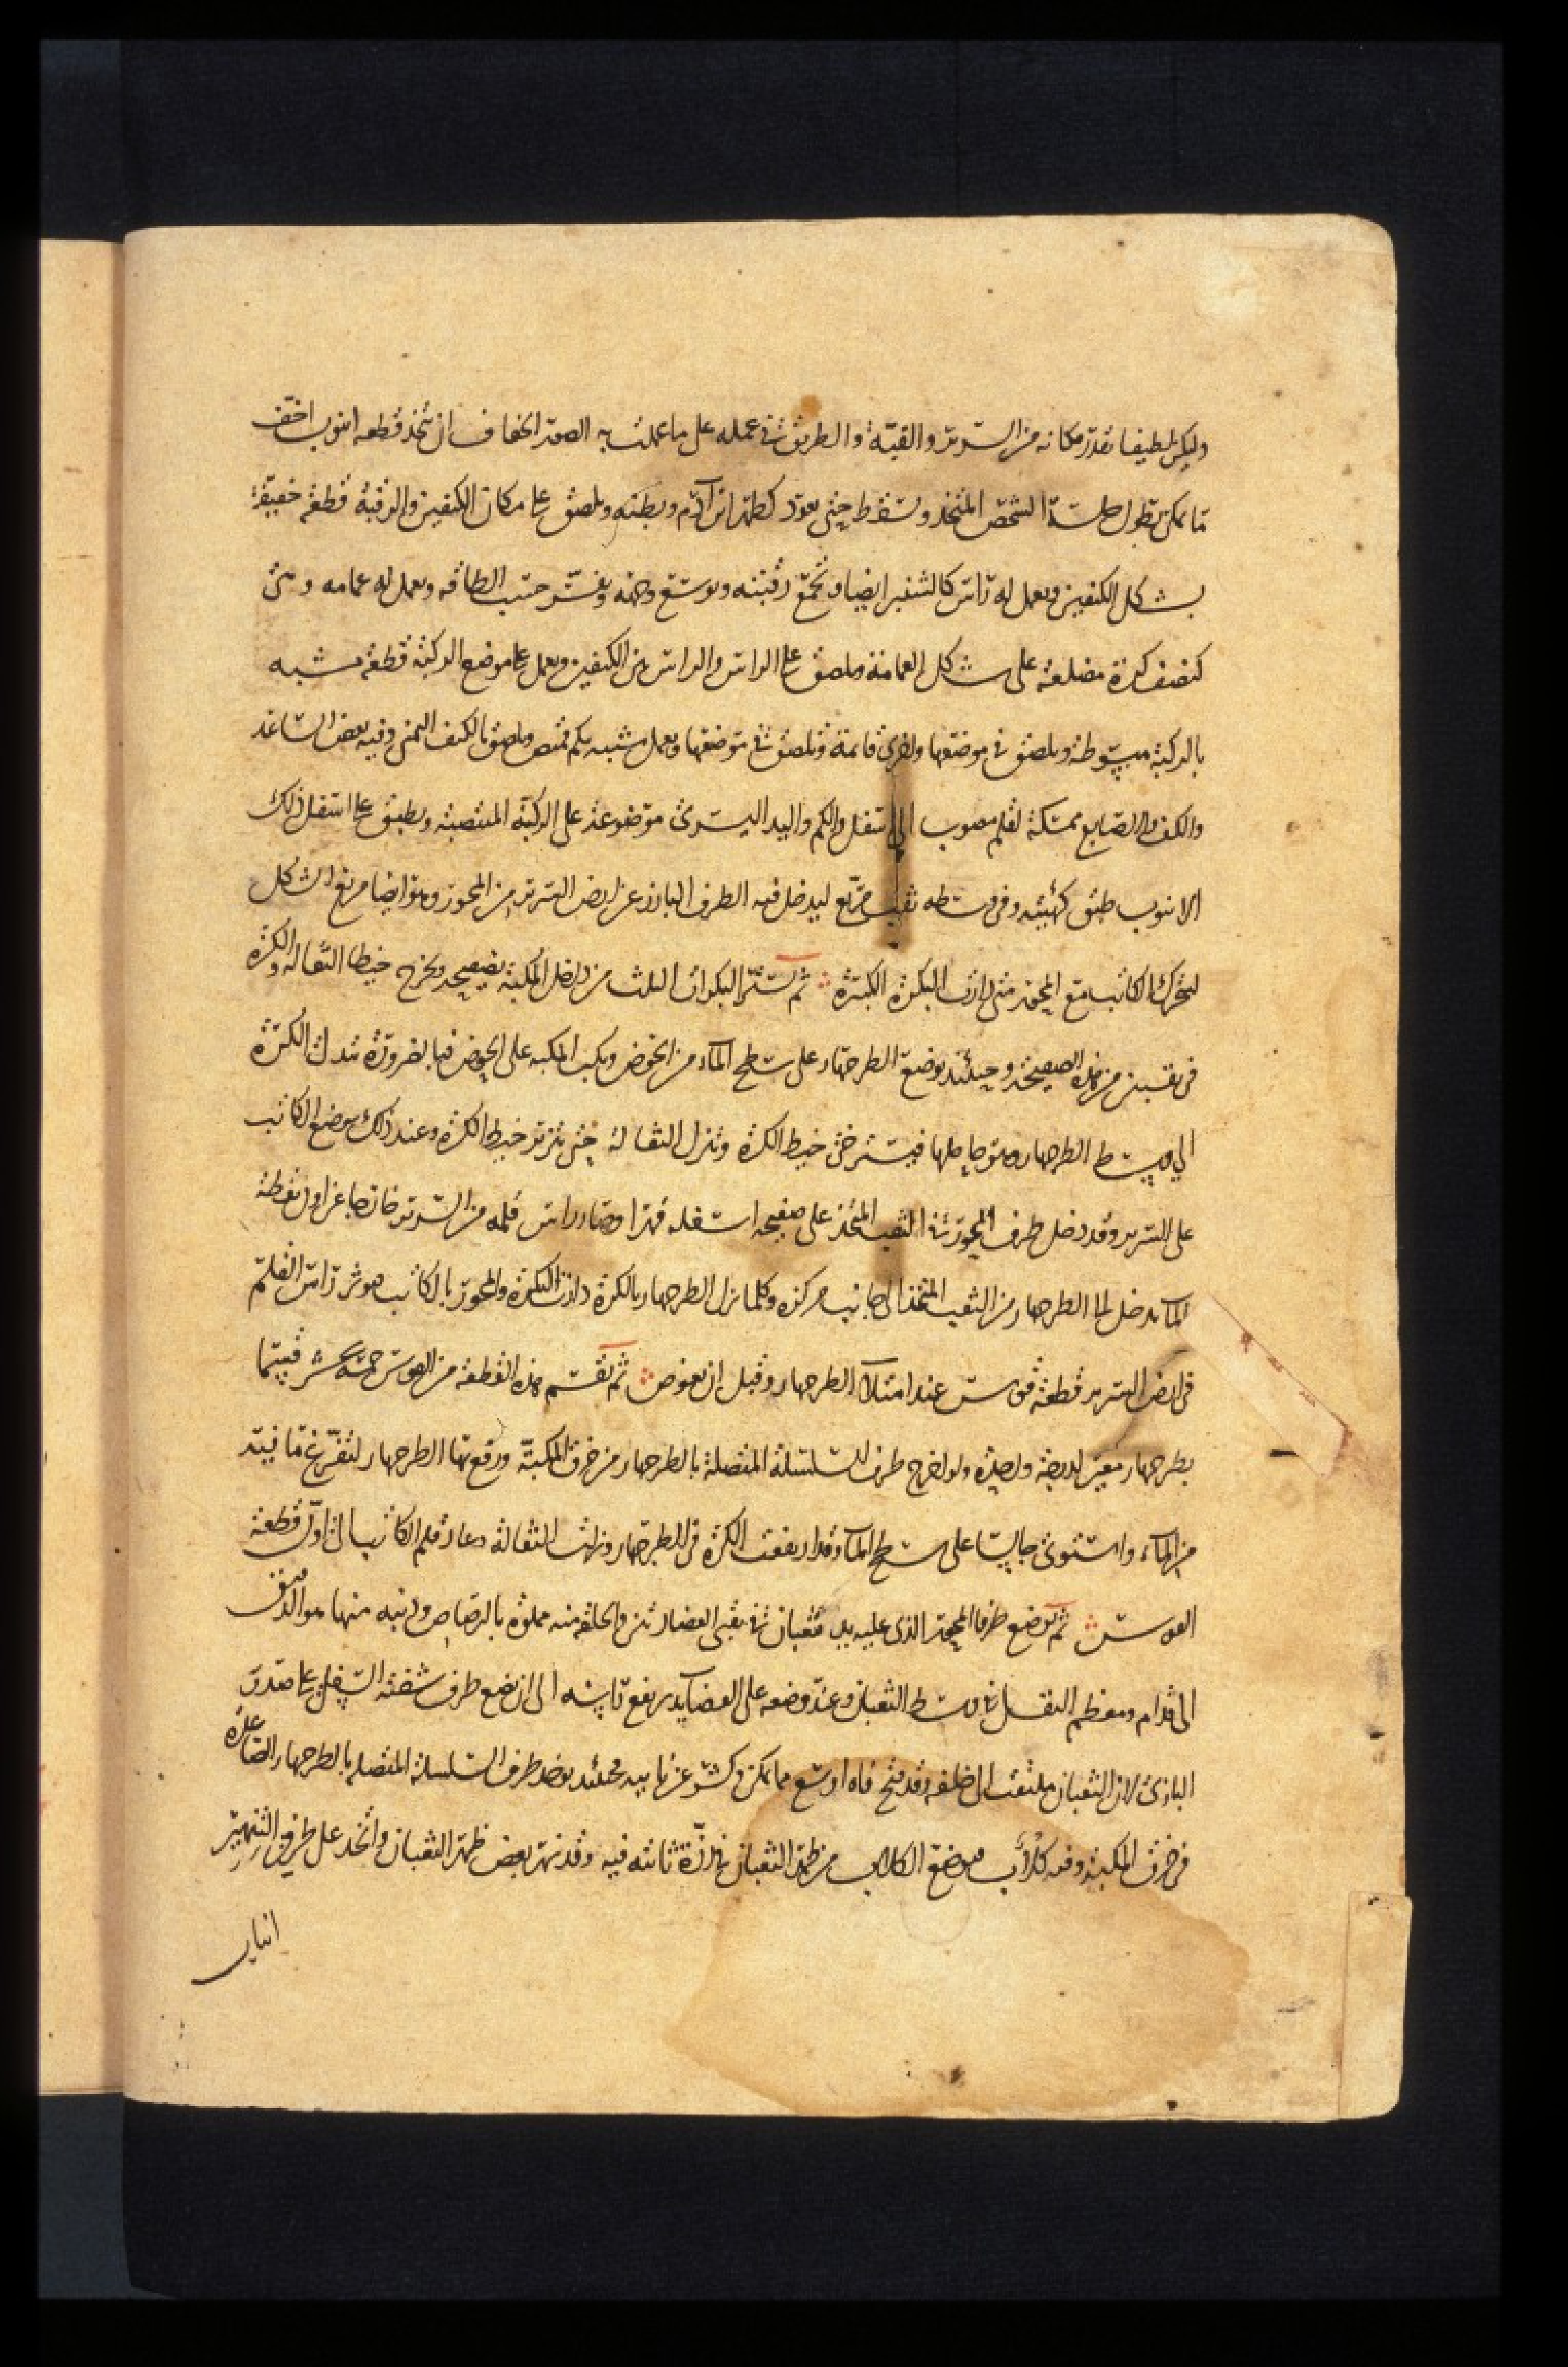 وليكن لطيفا بقدر مكانه من السرير والقبة والطريق في عمله على ما عملت به الصور الخفاف ان تتخذ قطعه انبوب اخف
ما يمكن بطول جلسة الشخص المتخذ وتسقط حتى يعود كظهر ابن آدم وبطنه ويلصق على مكان الكتفين والرقبة قطعة خفيفة
بشكل الكتفين ويعمل له راس كالشفير ايضا وتجمع رقبته ويوسع وجهه ويفسر حسب الطاقه ويعمل له عمامه وهي
كنصف كرة مضلعة على شكل العمامة ويلصق على الراس والراس بين الكتفين ويعمل على موضع الركبة قطعة مشبه
بالركبة مبسوطة ويلصق في موضعها واخرى قائمة وتلصق في موضعها ويعمل مشبه بكم قميص ويلصق بالكتف اليمنى وفيه بعض الساعد
والكف والاصابع ممسكة لقلم مصوب الى اسفل والكم واليد اليسرى موضوعة على الركبة المنتصبة ويطبق على اسفل ذلك
الانبوب طبق كهيئته وفي وسطه ثقب مربع ليدخل فيه الطرف البارز عن ارض السرير من المحور وهو ايضا مربع الشكل
ليتحرك الكاتب مع المحور متى دارت البكرة الكبيرة ثم تستر البكرات الثلث من داخل المكبة بصفيحة ويخرج خيطا الثقاله والكرة
في ثقبين من هذه الصفيحة وحينئذ يوضع الطرجهار على سطح الماء من الحوض ويكب المكبه على الحوض فبالضرورة تتدلى الكرة
الى وسط الطرجهار وهو حاملها فيسترخي خيط الكرة وتنزل الثقالة حتى يتوتر خيط الكرة وعند ذلك يوضع الكاتب
على السرير وقد دخل طرف المحور في الثقب المتخذ على صفيحه اسفله قهرا وصار راس قلمه من السرير خارجا عن اول نقطة
الماء يدخل الى الطرجهار من الثقب المتخذ الى جانب مركزه وكلما نزل الطرجهار بالكرة دارت البكرة والمحور بالكاتب فيؤثر راس القلم
في ارض السرير قطعة قوس عند امتلاء الطرجهار وقبل ان يغوص ثم تقسم هذه القطعة من القوس خمسة عشر قسما
بطرجهار معير لدرجة واحدة ولو اخرج طرف السلسلة المتصلة بالطرجهار من خرق المكبة ورفع بها الطرجهار لتفرغ ما فيه
من الماء واستوى جالسا على سطح الماء وقد ارتفعت الكرة في الطرجهار ونزلت الثقالة وعاد قلم الكاتب الى اول قطعة
القوس ثم يوضع طرفا المحور الذي عليه يدا ثعبان في ثقبي العضادتين والحلقة منه مملوة بالرصاص وذنبه منها مو الدقيق
الى قدام ومعظم الثقل في وسط الثعبان وعند وضعه على العضايد يرتفع راسه الى ان يضع طرف شفته السفلى على صدر
البازي لان الثعبان ملتفت الى خلفه وقد فتح فاه اوسع مما يمكن وكشر عن نابيه فحينئذ يوخذ طرف السلسلة المتصله بالطرجهار الصاعدة
في خرق المكبة وفيه كلاب فيوضع الكلاب من ظهر الثعبان في رزة ثابته فيه وقد نهر بعض ظهر الثعبان واتخذ على طرفي النهير
انياب